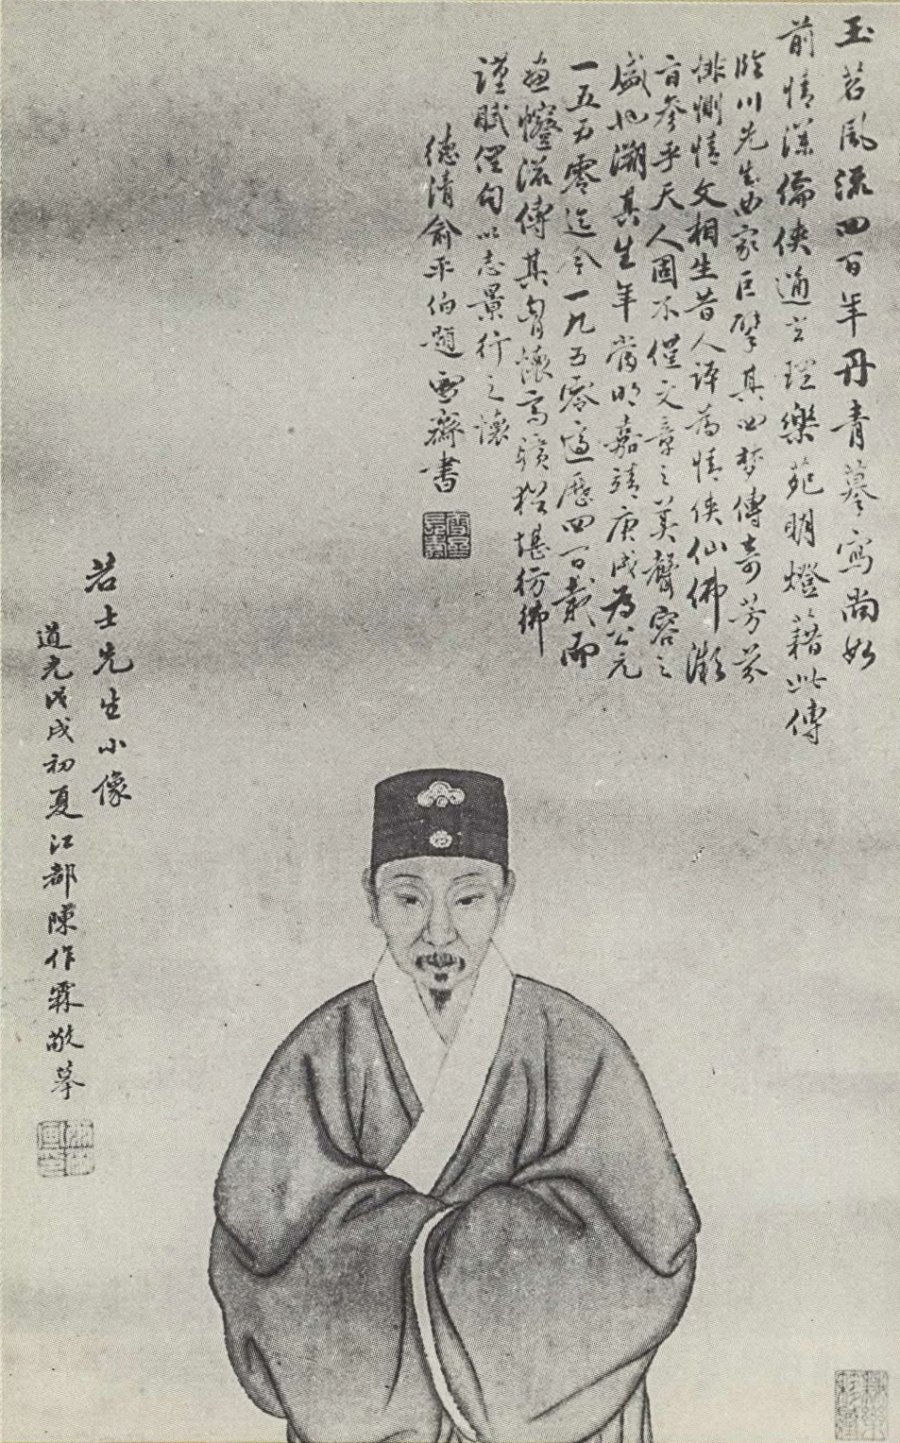 玉茗風流四百年丹青摹寫尚如
前情深儒俠通玄理樂苑明燈藉此傳
臨川先生曲家巨擘其四梦傳奇芳芬
悱惻情文相生昔人評為情俠仙佛濒
盲參乎天人固不僅文章之美聲容之
盛也溯其生年當明嘉靖庚戌為公元
一五五零迄今一九五零適歷四百載而
畫幨流傳其胷懷高曠猶堪彷彿
謹賦俚句以志景行之懷
德清俞平伯題 雪齋書
若士先生小像
道光戊戌初夏江都陳作霖敬摹